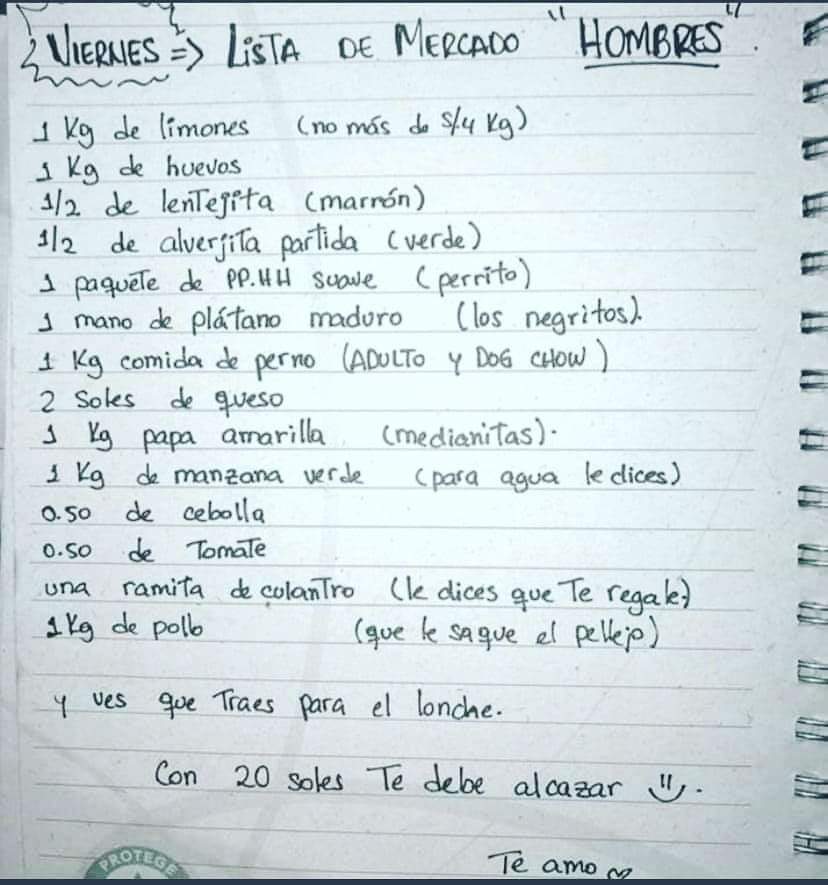 VIERNES => LISTA DE MERCADO "HOMBRES".
1 Kg de limones (no más de S/4 Kg)
1 Kg de huevos
1/2 de lentejita (marrón)
1/2 de alverjita partida (verde)
1 paquete de PP.HH suave (perrito)
1 mano de plátano maduro (los negritos).
1 Kg comida de perro (ADULTO y DOG CHOW)
2 soles de queso
1 Kg papa amarilla (medianitas).
1 Kg de manzana verde (para agua le dices)
0.50 de cebolla
0.50 de Tomate
una ramita de culantro (le dices que Te regale)
1 Kg de pollo (que le saque el pellejo)
y ves que Traes para el lonche.
Con 20 soles Te debe alcazar
Te amo
PROTEGE